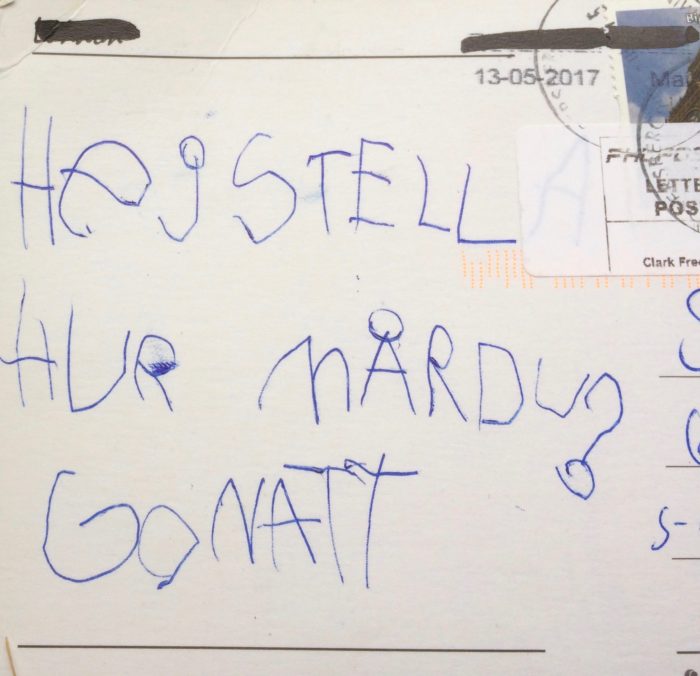 13-05-2017
HEJ STELL A
HUR MÅR DU?
GONATT
LETTE
POS
Clark Fre
S-